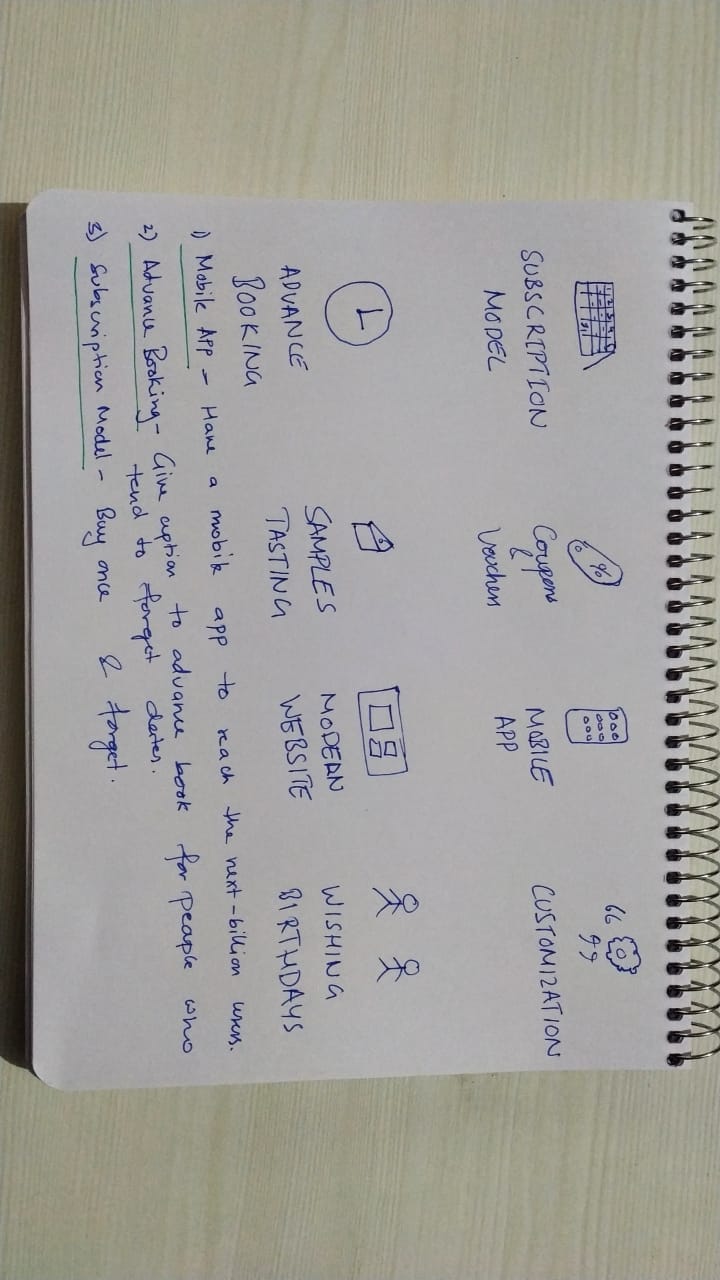 SUBSCRIPTION
MODEL
Coupons
&
Vouchers
MOBILE
APP
CUSTOMIZATION
ADVANCE
BOOKING
SAMPLES
TASTING
MODERN
WEBSITE
WISHING
BIRTHDAYS
1) Mobile App - Have a mobile app to reach the next-billion users.
2) Advance Booking - Give option to advance book for people who
tend to forget dates.
3) Subscription Model - Buy once & forget.